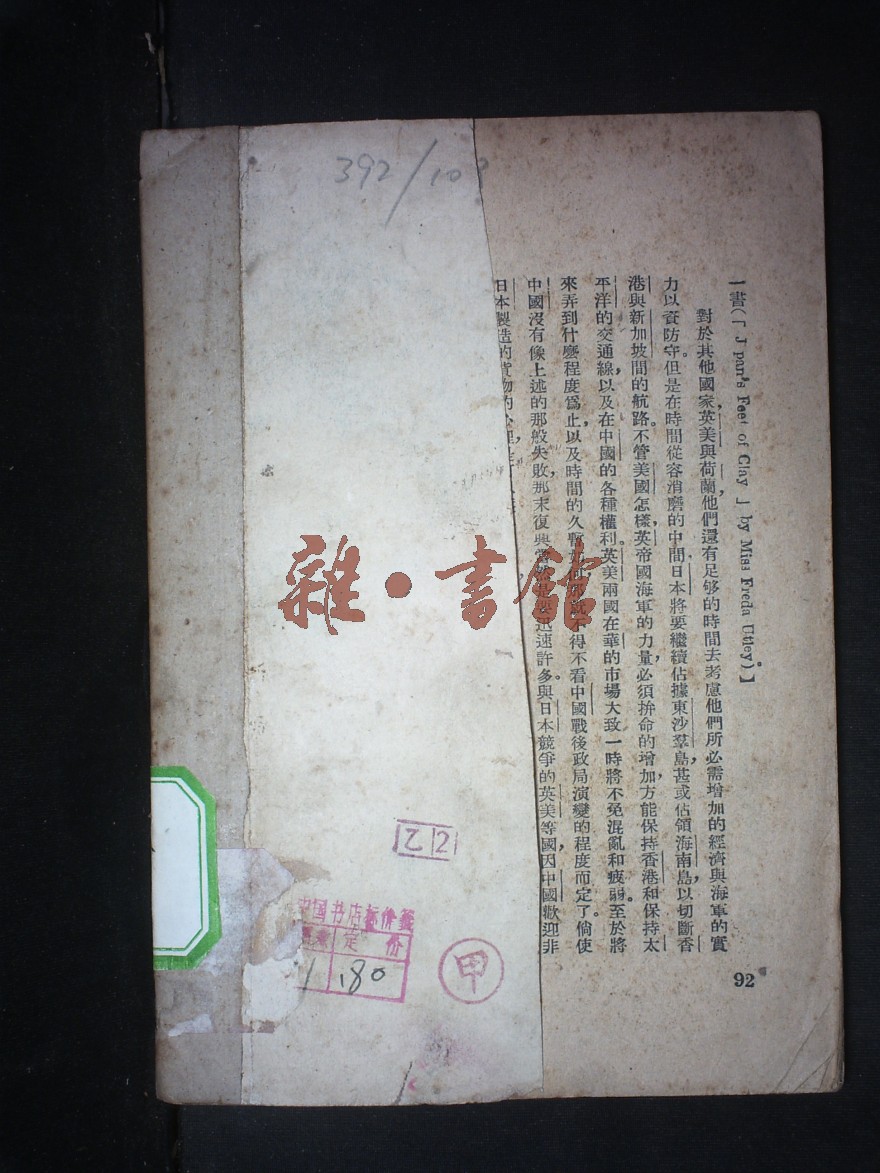 392/10
一書(「J pan's Feet of Clay」by Miss Freda Utley)】
對於其他國家，英美與荷蘭，他們還有足够的時間去考慮他們所必需增加的經濟與海軍的實
力以資防守。但是在時間從容消磨的中間，日本將要繼續佔據東沙羣島，甚或佔領海南島，以切斷香
港與新加坡間的航路。不管美國怎樣，英帝國海軍的力量，必須拚命的增加，方能保持香港和保持太
平洋的交通線，以及在中國的各種權利。英美兩國在華的市場大致一時將不免混亂和疲弱。至於將
來弄到什麼程度爲止，以及時間的久暫 不得不看中國戰後政局演變的程度而定了。倘使
中國沒有像上述的那般失敗，那末復興 迅速許多。與日本競爭的英美等國，因中國歡迎非
日本製造的貨物的
92
雜·書館
乙2
中国书店标价签
定价
1.80
甲